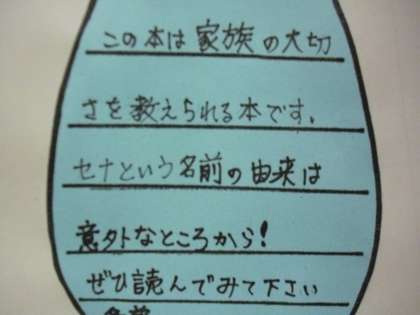 この本は家族の大切
さを教えられる本です。
セナという名前の由来は
意外なところから!
ぜひ読んでみて下さい